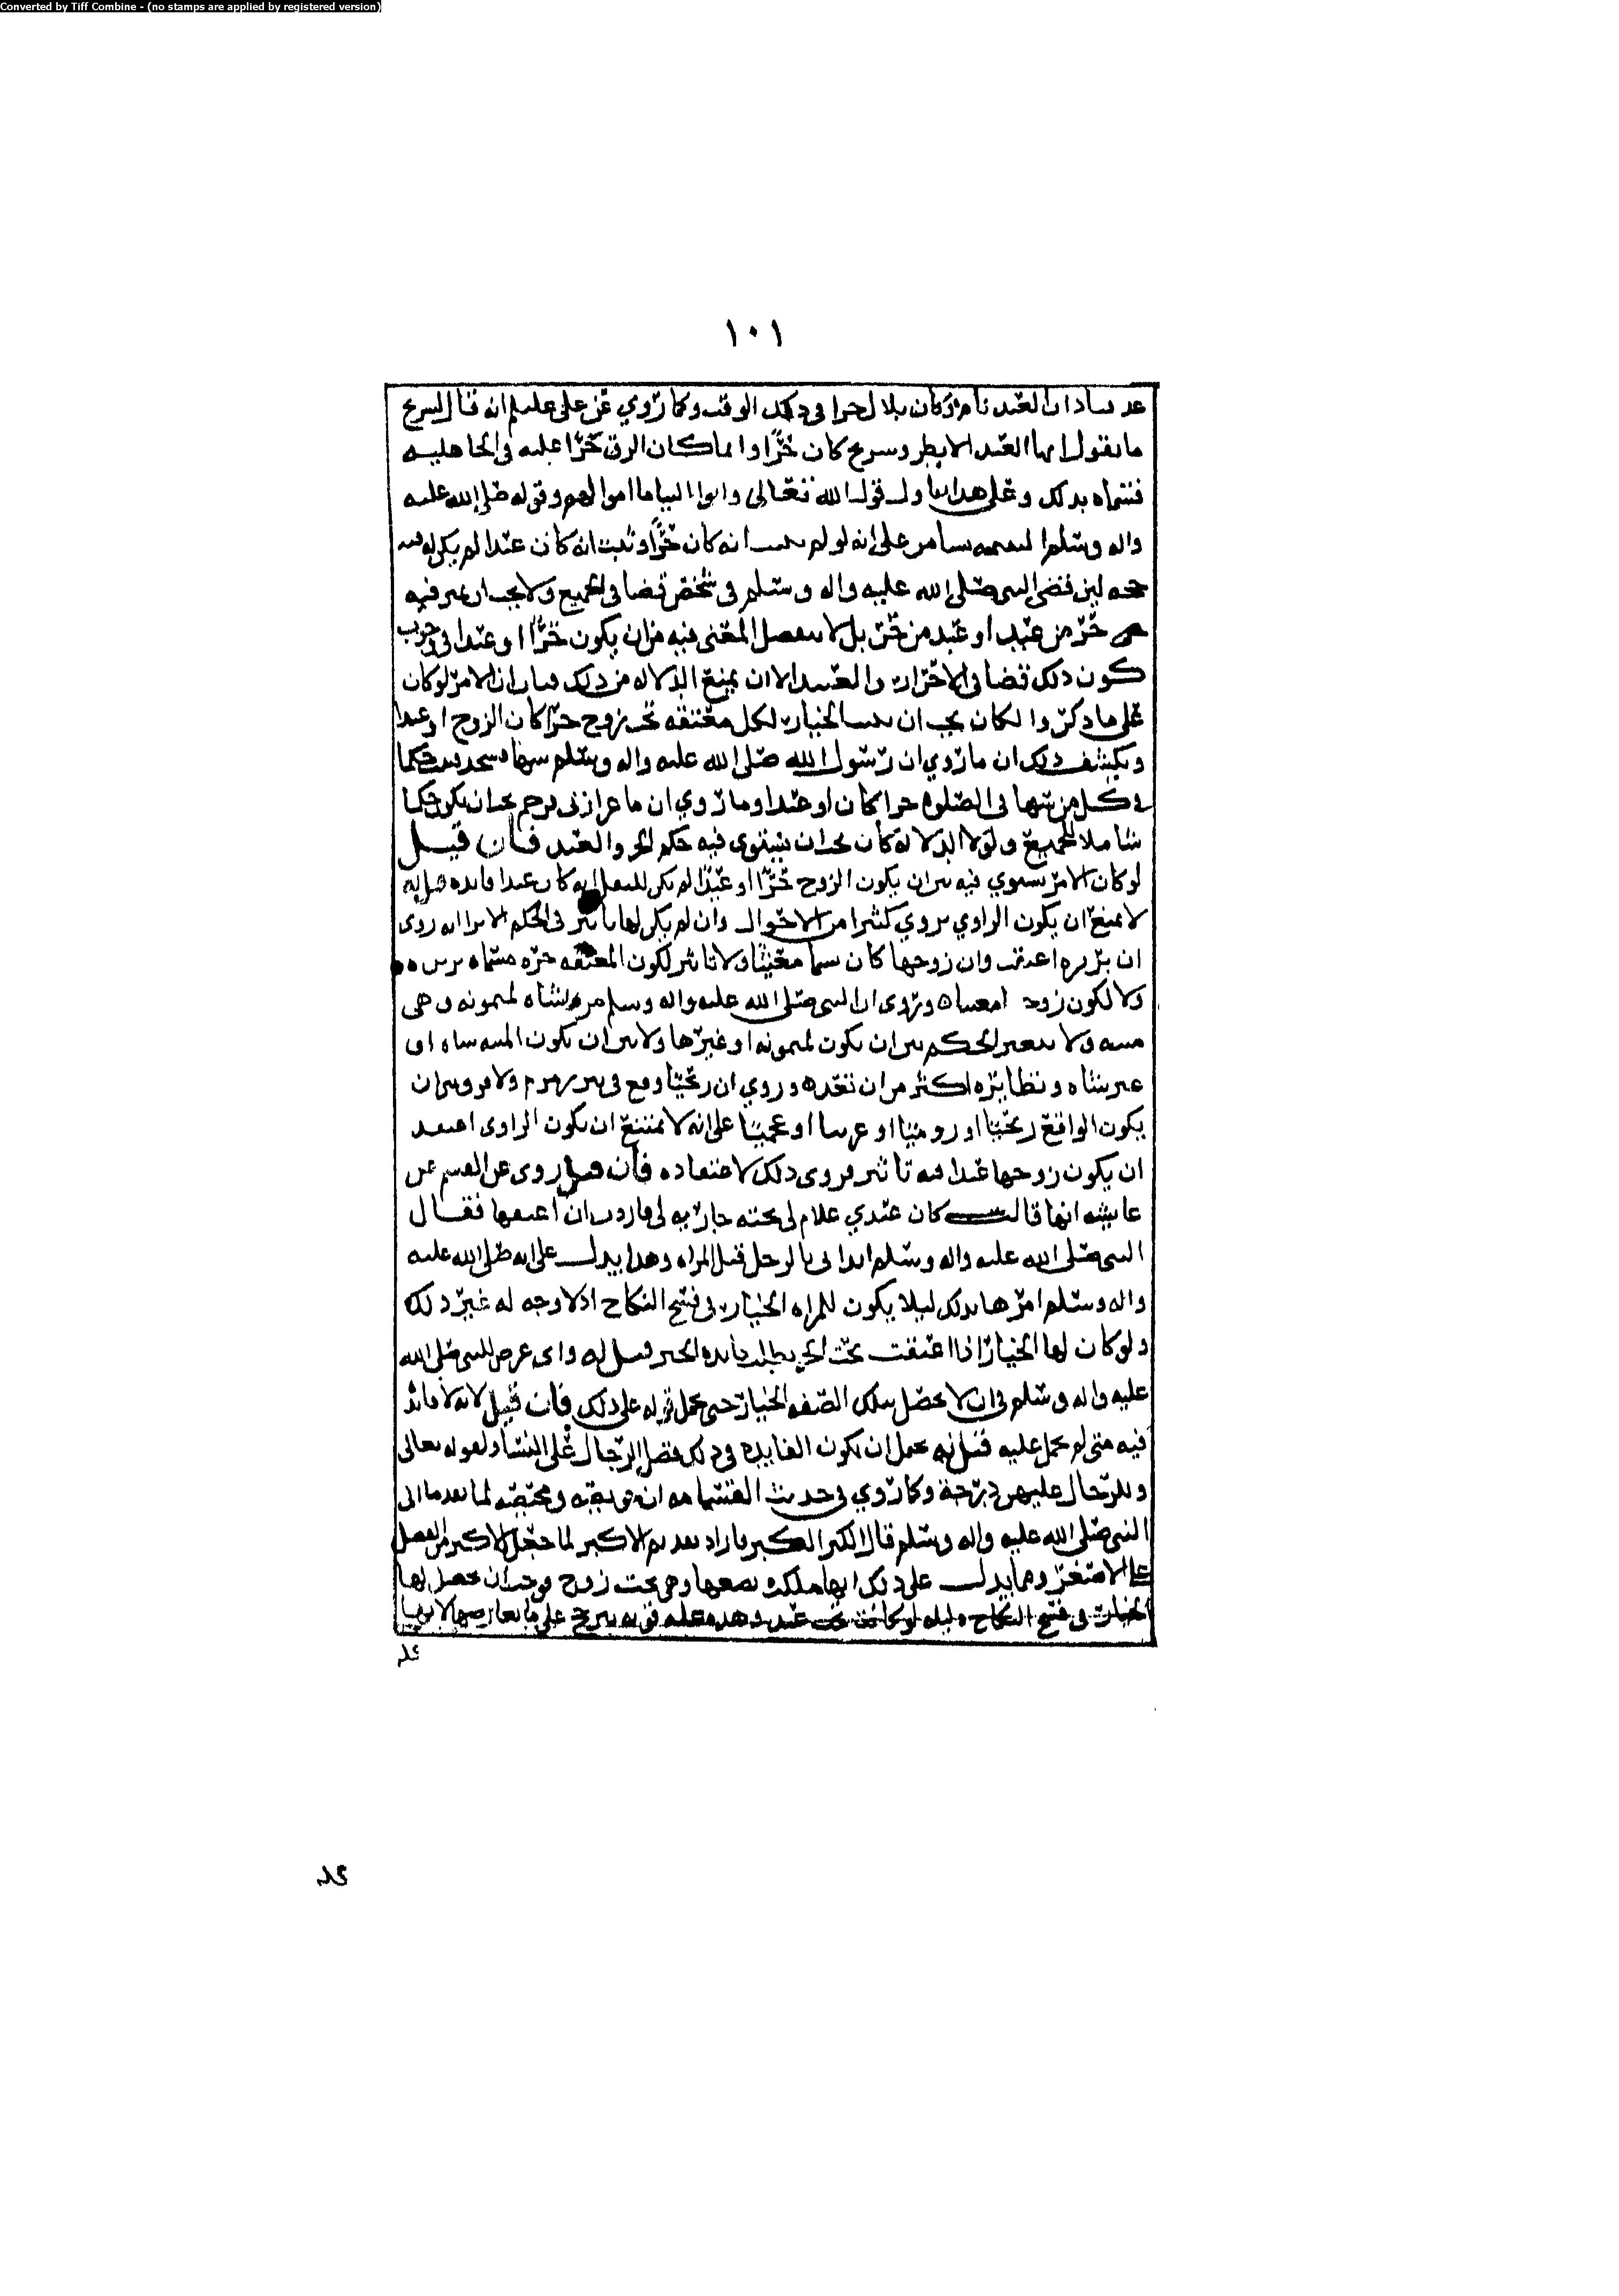 Converted by Tiff Combine - (no stamps are applied by registered version)
١٠١
العبد نام وكان بلال حرا في ذلك الوقت وكما روي عن علي عليلم انه قال لشريح
ما تقول ايها العبد الابظر وشريح كان حرًّا وانما كان الرق جرًا عليه في الجاهليه
فسماه بذلك وعلى هذا قول الله تعالى واتوا اليتاما اموالهم وقوله صلى الله عليه
واله وسلم على انه لو لم انه كان حرًّا وثبت انه كان عبدا لم يكن فيه
حجه لان قضى النبي صلى الله عليه واله وسلم في شخص قضا في الجميع ولا يجب ان فيه
حر من عبد او عبد من حر بل لا المعنى فيه من ان يكون حرًّا او عبدا في وجوب
كون ذلك قضا في الاحرار والعبيد الا ان يمنع الدلاله من ذلك ان الامر لو كان
على ما ذكروا لكان يجب ان الخيار لكل معتقه تحت زوج حرا كان الزوج او عبدا
ويكشف ذلك ان ما روي ان رسول الله صلى الله عليه واله وسلم سها فسجد حكما
في كل من سها في الصلوه حرا كان او عبدا وما روي ان ماعزا زنى فرجم يجب ان يكون حكما
شاملا للجميع ولولا الدلاله كان يجب ان يستوي فيه حكم الحر والعبد فان قيل
لو كان الامر يستوي فيه بين ان يكون الزوج حرًّا او عبدًا لم يكن كان عبدا فايده قيل له
لا يمنع ان يكون الراوي يروي كثيرا من الاحوال وان لم يكن لها تاثير في الحكم الا ترا انه روى
ان بريره اعتقت وان زوجها كان يسما مغيثا ولا تاثير لكون المعتقه حره مسماه
ولا لكون زوجها مغيثا ويروى ان النبي صلى الله عليه واله وسلم مر بشاه لميمونه وهي
ميته ولا يتغير الحكم بين ان تكون لميمونه او غيرها ولا بين ان تكون الميته شاه او
غير شاه ونظايره اكثر من ان نعده وروي ان زنجيا وقع في بير زمزم ولا فرق بين ان
يكون الواقع زنجيا او روميا او عربيا او عجميا على انه لا يمتنع ان يكون الراوى اعتقد
ان يكون زوجها عبدا فيه تاثير فروى ذلك لاعتقاده فان قيل روى عن القسم عن
عايشه انها قالت كان عندي غلام لي تحته جاريه لي فاردت ان اعتقها فقال
النبي صلى الله عليه واله وسلم ابدائي بالرجل قبل المراه وهذا يدل على انه صلى الله عليه
واله وسلم امرها بذلك ليلا يكون للمراه الخيار في فسخ النكاح اذ لا وجه له غير ذلك
ولو كان لها الخيار اذا اعتقت تحت الحر بطلت فايده الخبر قيل له واى غرض للنبي صلى الله
عليه واله وسلم في ان لا يحصل بتلك الصفه الخيار حتى تحمل قوله على ذلك فان قيل لانه لا فايده
فيه متى لم يحمل عليه قيل له يحتمل ان تكون الفايده في ذلك فضل الرجال على النساء لقوله تعالى
وللرجال عليهن درجة وكما روي في حديث القسامه ان حويصه ومحيصه لما تقدما الى
النبي صلى الله عليه واله وسلم قال الكبر الكبر فاراد تقديم الاكبر لما جعل للاكبر من الفضل
على الاصغر ومما يدل على ذلك انها ملكت بضعها وهي تحت زوج فوجب ان يحصل لها
الخيار في فسخ النكاح دليله لو كانت تحت عبد وهذه عله قويه ترجح على ما يعارضها لانها